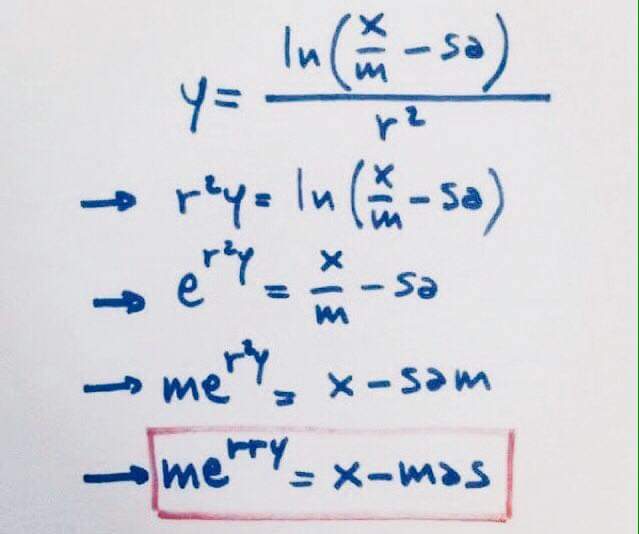 y = ln(x/m - sa) / r²
→ r²y = ln(x/m - sa)
→ e^(r²y) = x/m - sa
→ me^(r²y) = x - sam
→ me^(rry) = x - mas